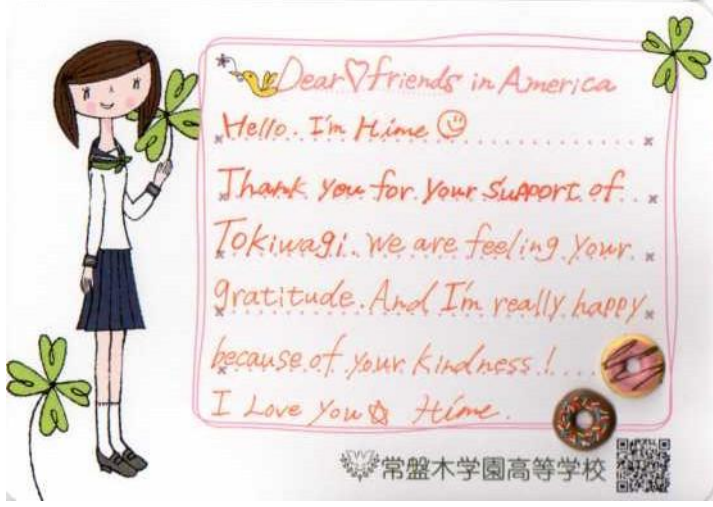 Dear♡friends in America
Hello. I'm Hime ☺
Thank you for your support of
Tokiwagi. We are feeling your
gratitude. And I'm really happy
because of your kindness!
I Love You☆ Hime.
常盤木学園高等学校